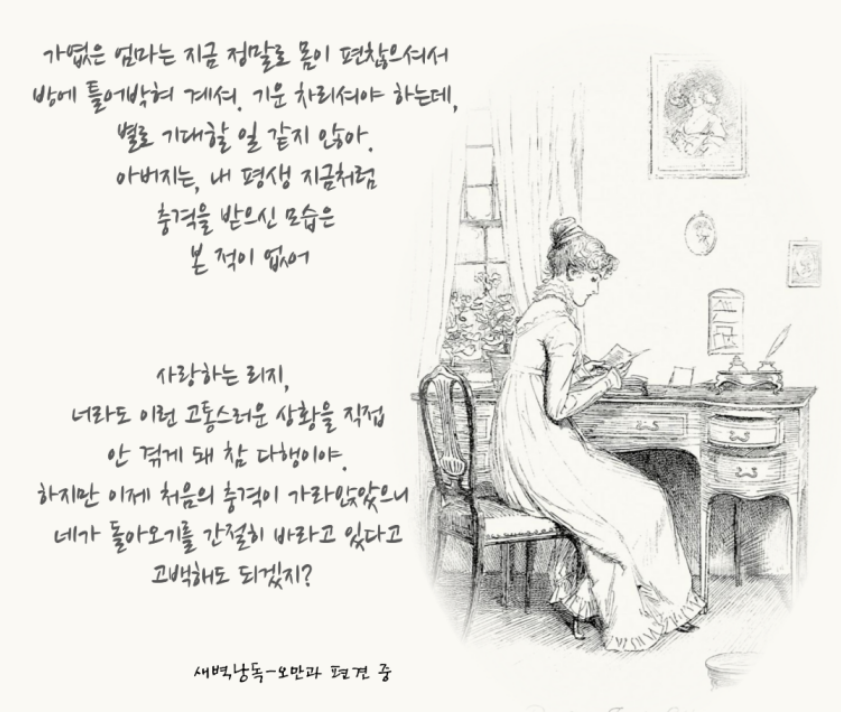 가엾은 엄마는 지금 정말로 몸이 편찮으셔서
방에 틀어박혀 계셔. 기운 차리셔야 하는데,
별로 기대할 일 같지 않아.
아버지는, 내 평생 지금처럼
충격을 받으신 모습은
본 적이 없어
사랑하는 리지,
너라도 이런 고통스러운 상황을 직접
안 겪게 돼 참 다행이야.
하지만 이제 처음의 충격이 가라앉았으니
네가 돌아오기를 간절히 바라고 있다고
고백해도 되겠지?
새벽낭독-오만과 편견 중